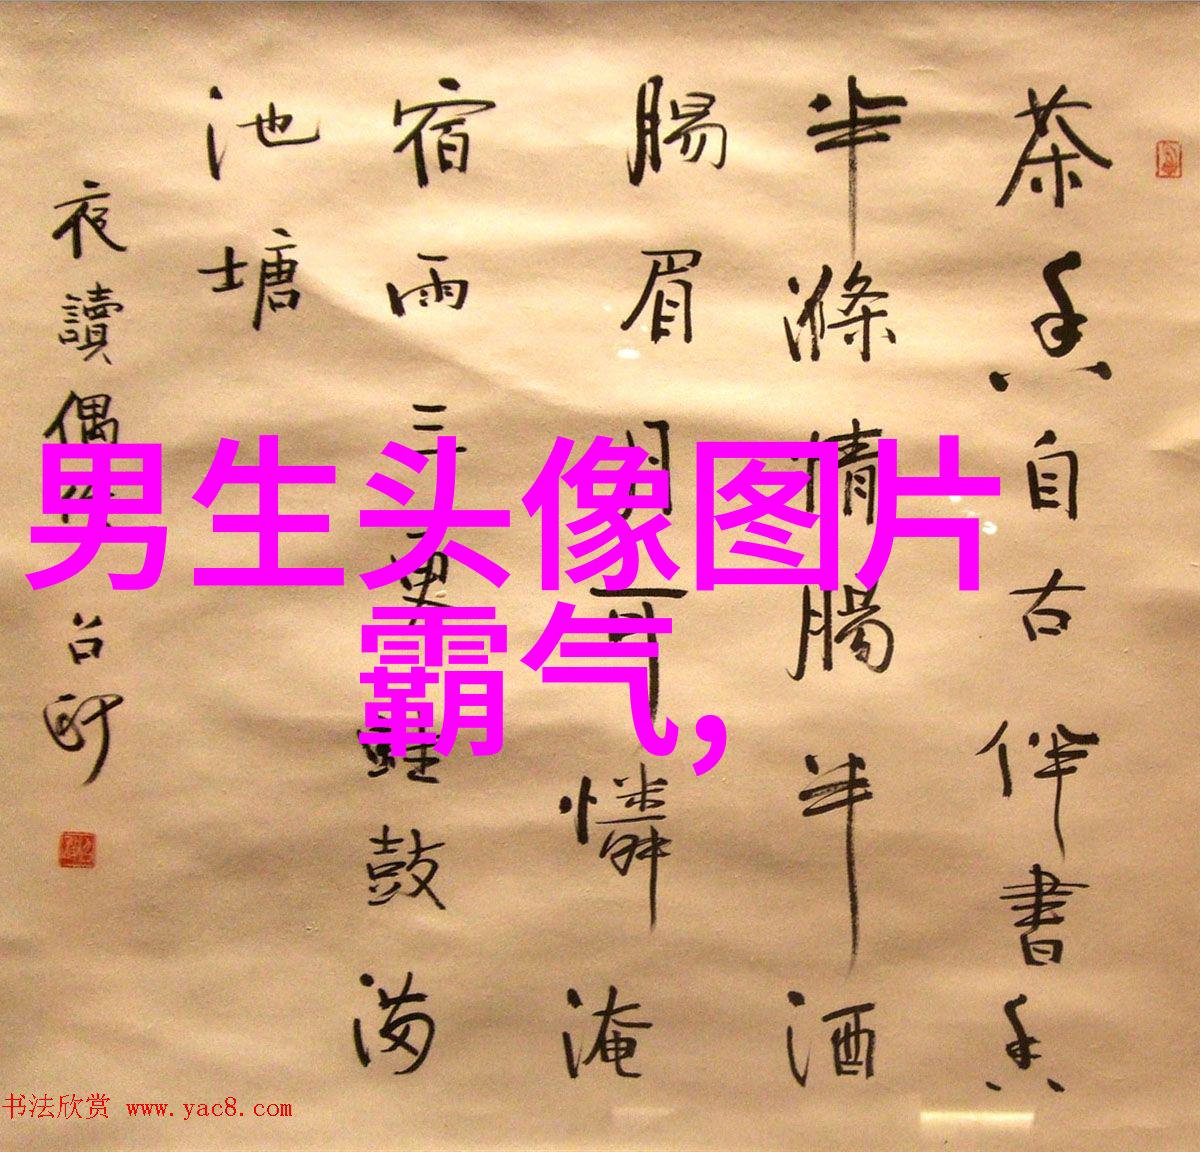 茶香自古伴書香
半滌情腸半酒
腸眉月可憐淹
宿雨三更蛙鼓满
池塘
夜讀偶
男生头像图片
霸气,
书法欣赏 www.yac8.com